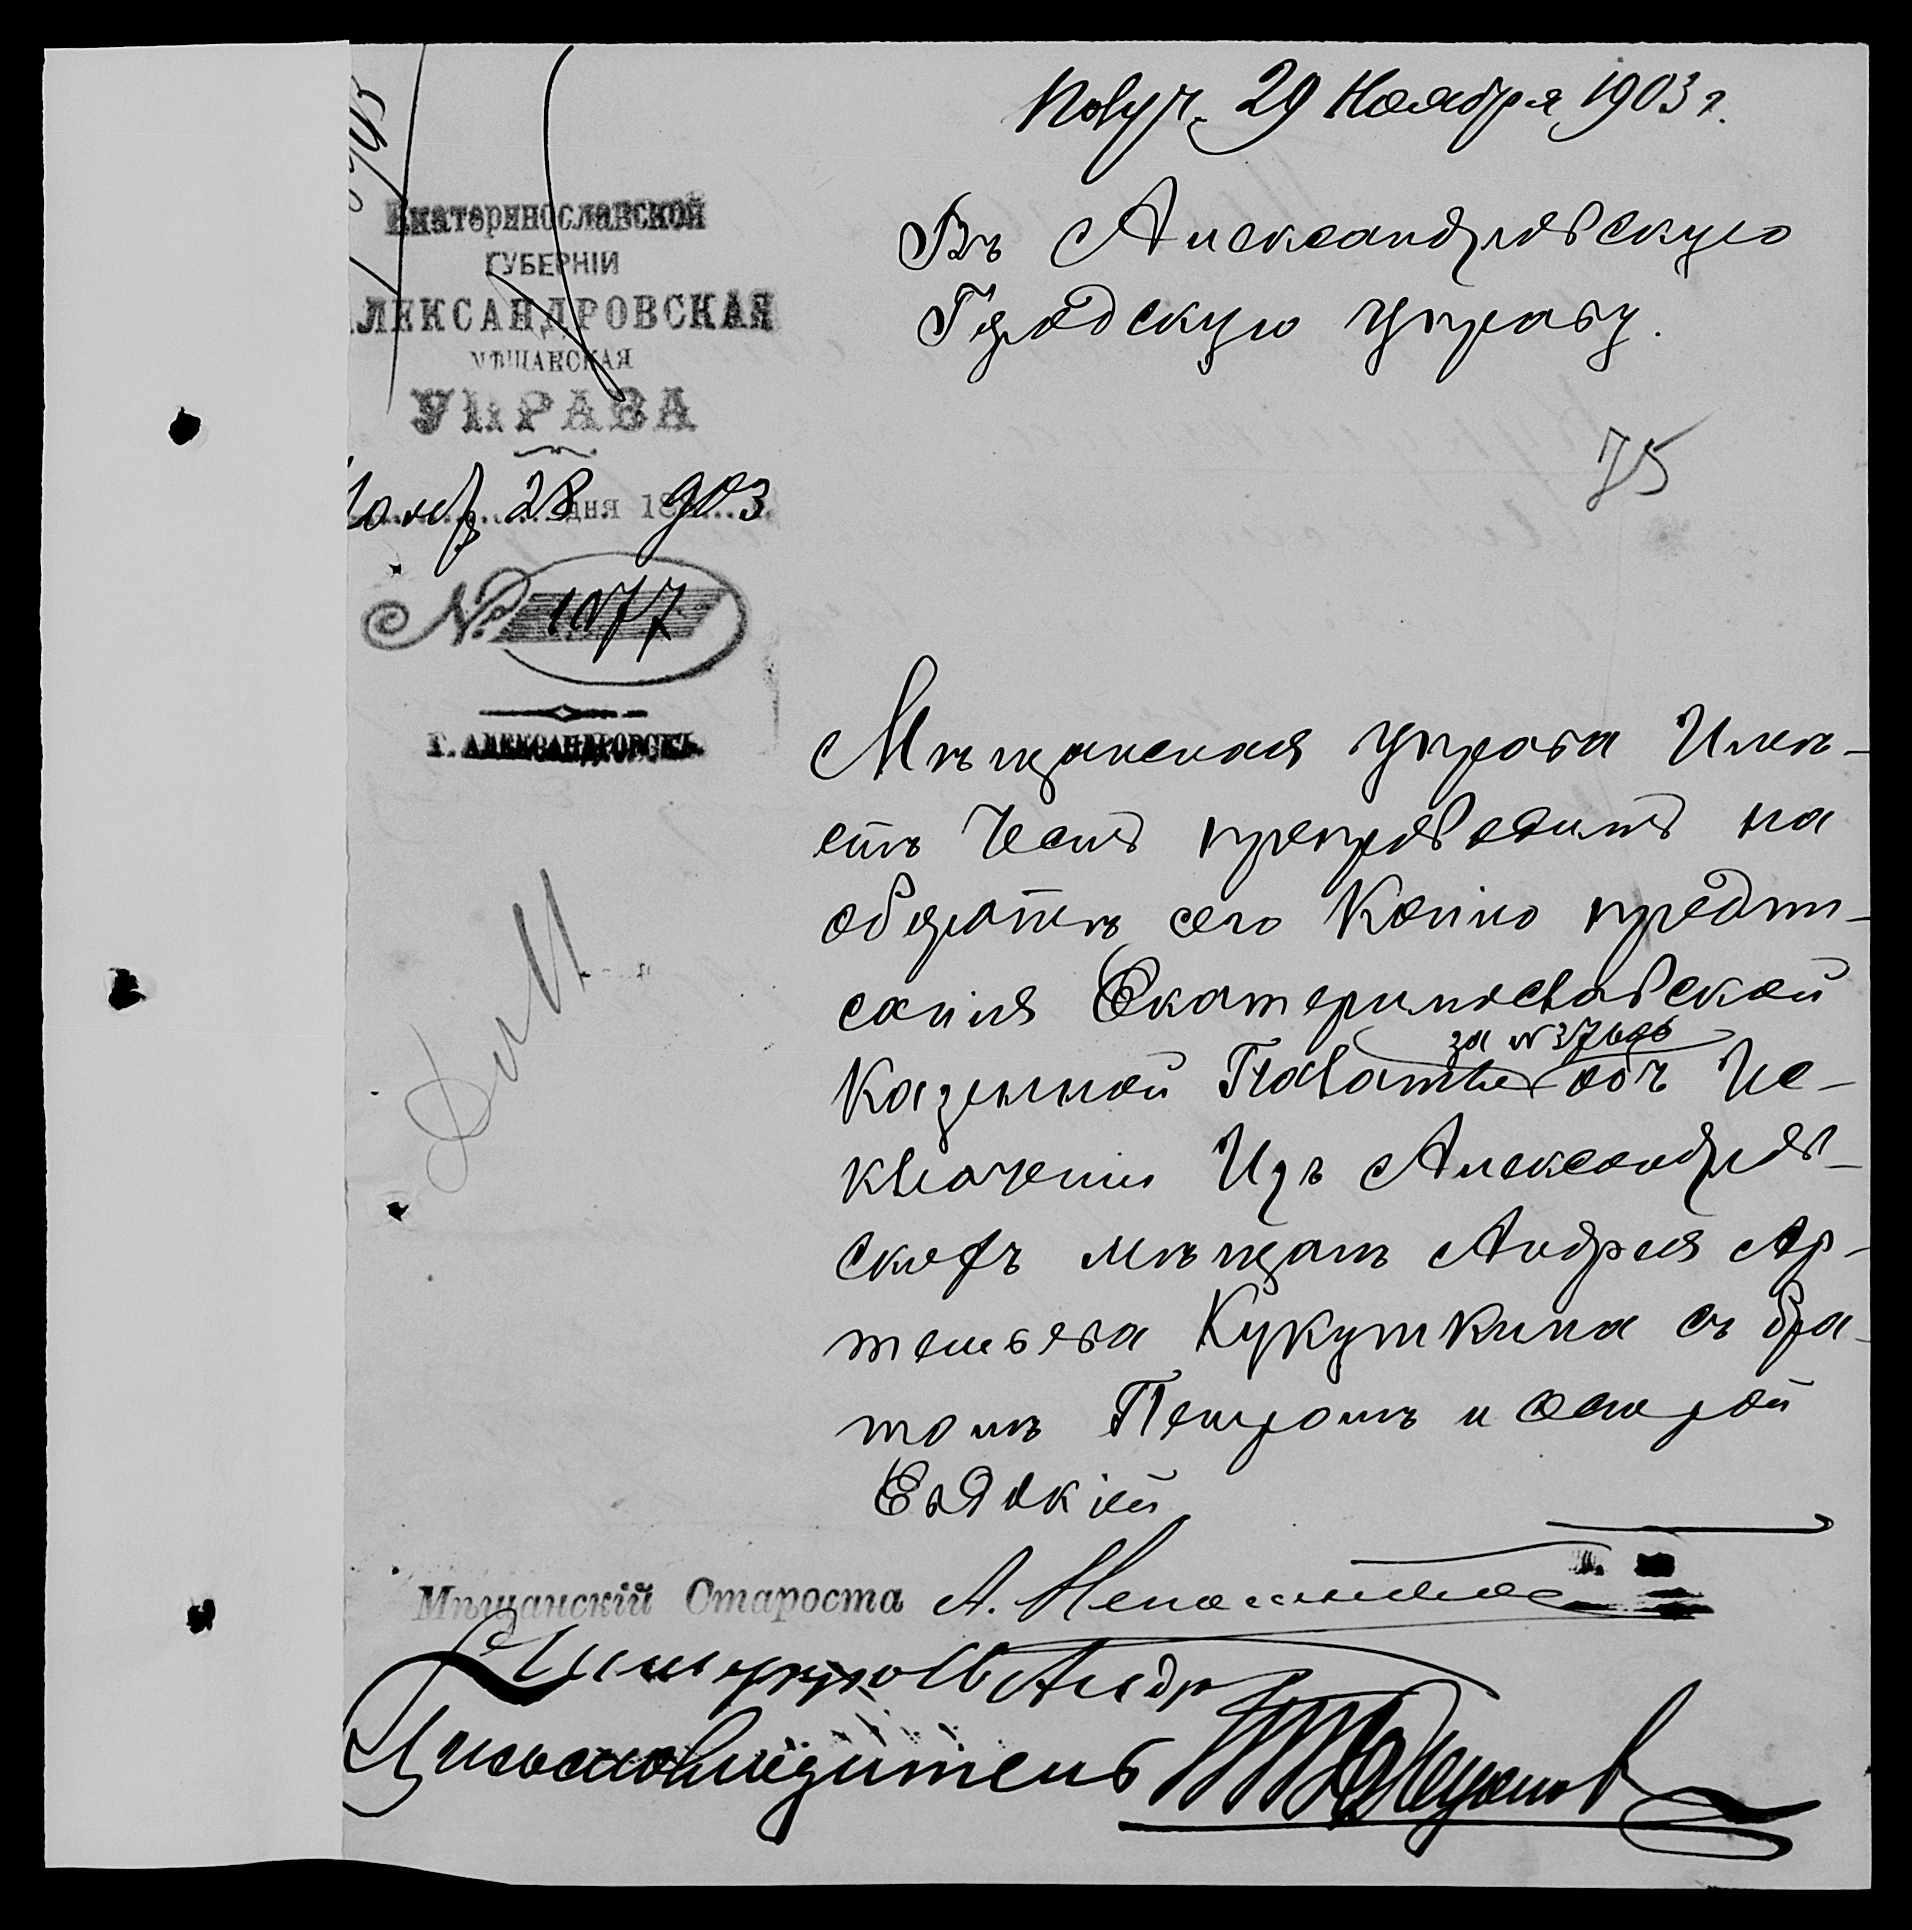 Получ. 29 Ноября 1903 г.
Екатеринославской
ГУБЕРНІИ
АЛЕКСАНДРОВСКАЯ
МѢЩАНСКАЯ
УПРАВА
Нояб. 28 дня 1903
№ 1077
Г. АЛЕКСАНДРОВСКЪ
Въ Александровскую
Городскую управу.
75
Мѣщанская управа Имѣ-
етъ Честь препроводить на
оборотѣ сего Копію предпи-
санія Екатеринославской
за №37686
Казенной Палаты объ Ис-
ключеніи Изъ Александров-
скихъ мѣщанъ Андрея Ар-
темьева Кукуткина съ бра-
томъ Петромъ и сестрой
Евдокіей
Мѣщанскій Староста А.
Письмоводитель